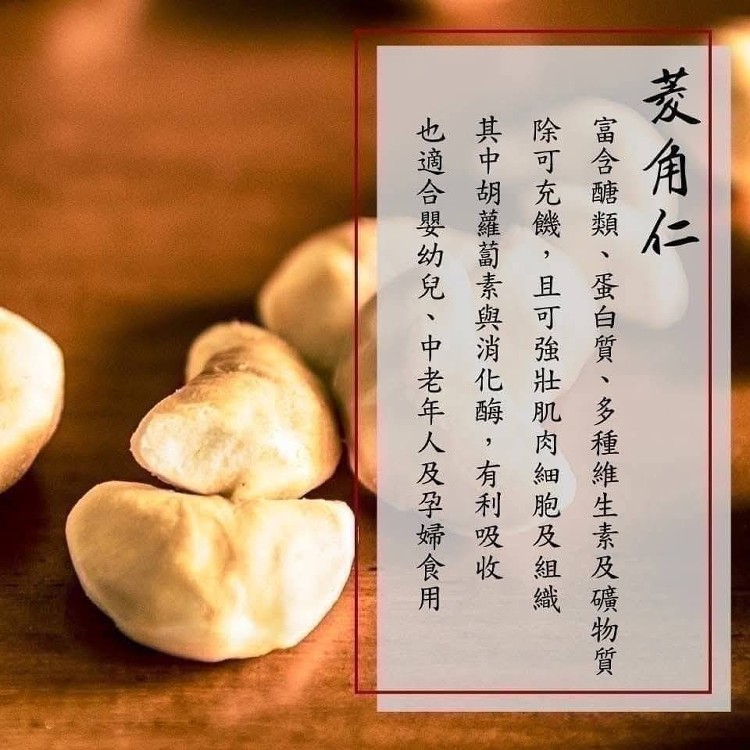 菱角仁
富含醣類、蛋白質、多種維生素及礦物質
除可充饑，且可強壯肌肉細胞及組織
其中胡蘿蔔素與消化酶，有利吸收
也適合嬰幼兒、中老年人及孕婦食用